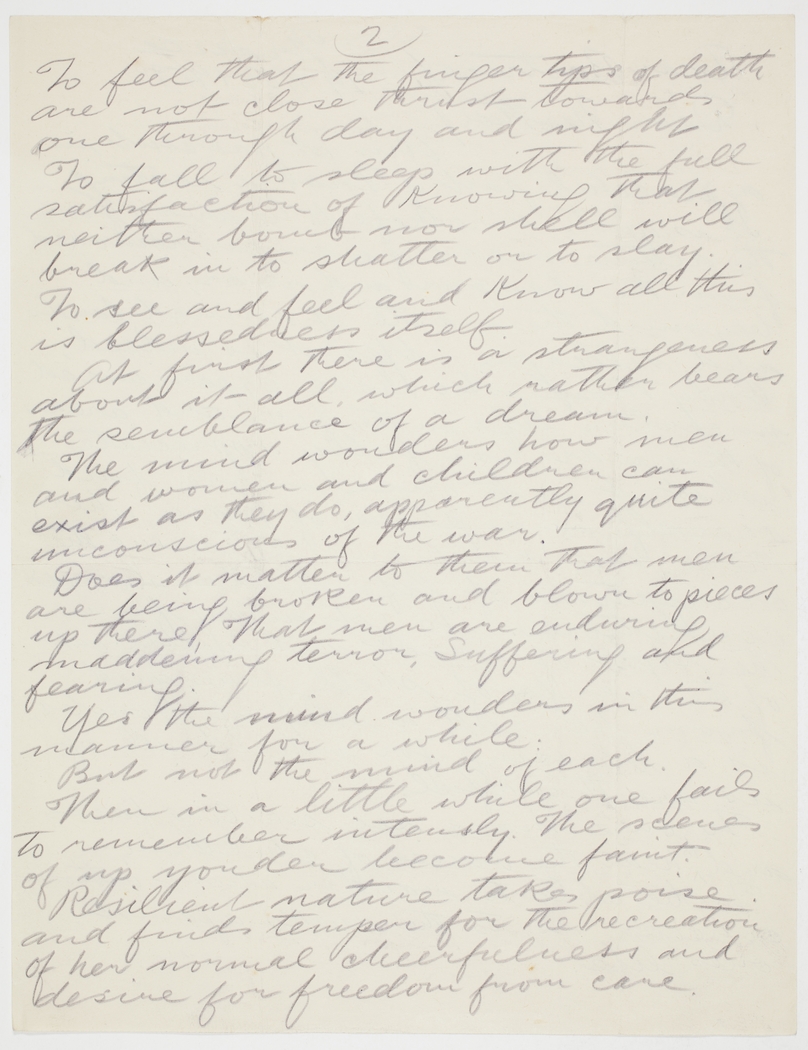 2
To feel that the finger tips of death
are not close thrust towards
one through day and night
To fall to sleep with the full
satisfaction of Knowing that
neither bomb nor shell will
break in to shatter or to slay.
To see and feel and Know all this
is blessedness itself
At first there is a strangeness
about it all, which rather bears
the semblance of a dream.
The mind wonders how men
and women and children can
exist as they do, apparently quite
unconscious of the war.
Does it matter to them that men
are being broken and blown to pieces
up there! That men are enduring
maddening terror, Suffering and
fearing.
Yes the mind wonders in this
manner for a while.
But not the mind of each.
Then in a little while one fails
To remember intensly. The scenes
of up yonder become faint.
Resilient nature takes poise
and finds temper for the recreation
of her normal cheerfulness and
desire for freedom from care.